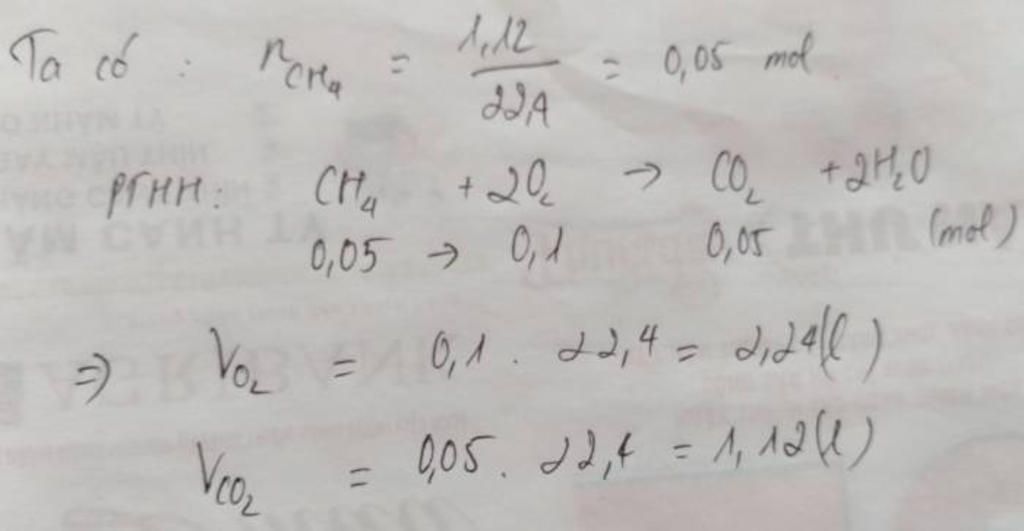 Ta có : nCH₄ = 1,12 / 22,4 = 0,05 mol
PTHH: CH₄ + 2O₂ → CO₂ + 2H₂O
0,05 → 0,1 0,05 (mol)
=> VO₂ = 0,1 . 22,4 = 2,24(l)
VCO₂ = 0,05 . 22,4 = 1,12(l)